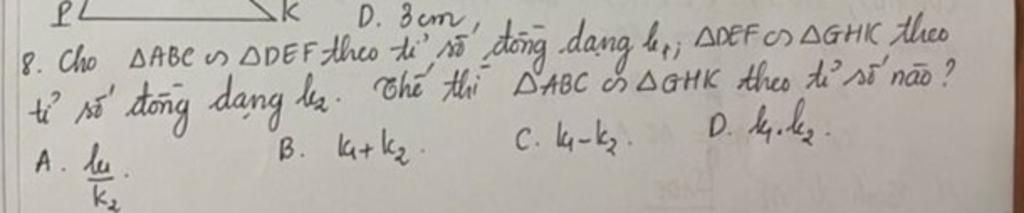 P K D. 3cm,
8. Cho ΔABC ∽ ΔDEF theo tỉ số đồng dạng k₁; ΔDEF ∽ ΔGHK theo
tỉ số đồng dạng k₂. Thế thì ΔABC ∽ ΔGHK theo tỉ số nào?
A. k₁/k₂. B. k₁+k₂. C. k₁-k₂. D. k₁.k₂.